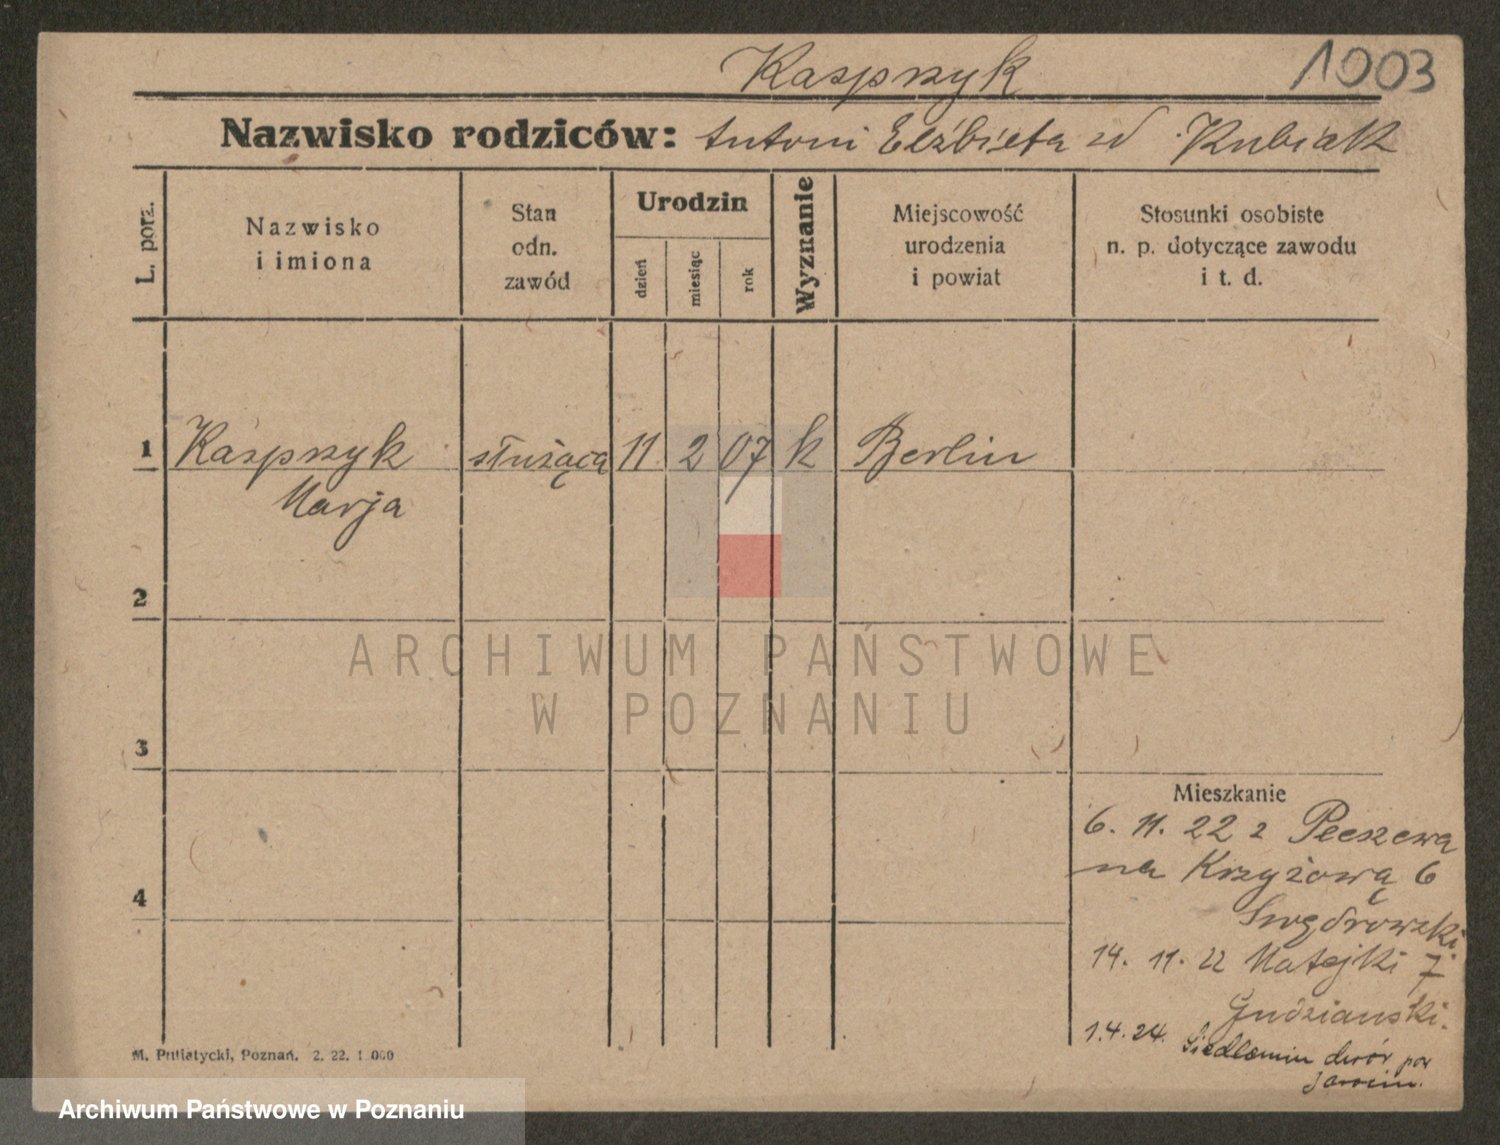 Kasprzyk 1003
Nazwisko rodziców: Antoni Elżbieta zd Kubiak
L. porz.
Nazwisko
i imiona
Stan
odn.
zawód
Urodzin
dzień
miesiąc
rok
Wyznanie
Miejscowość
urodzenia
i powiat
Stosunki osobiste
n. p. dotyczące zawodu
i t. d.
1 Kasprzyk służąca 11 2 07 k Berlin
Marja
2
ARCHIWUM PAŃSTWOWE
W POZNANIU
3
Mieszkanie
6. 11. 22 z Pleszewa
na Krzyżową 6
4
14. 11. 22 Matejki 7
Gudzianski.
1.4.24. Siedlemin dwór pow
Jarocin.
M. Putiatycki, Poznań. 2. 22. 1 000
Archiwum Państwowe w Poznaniu